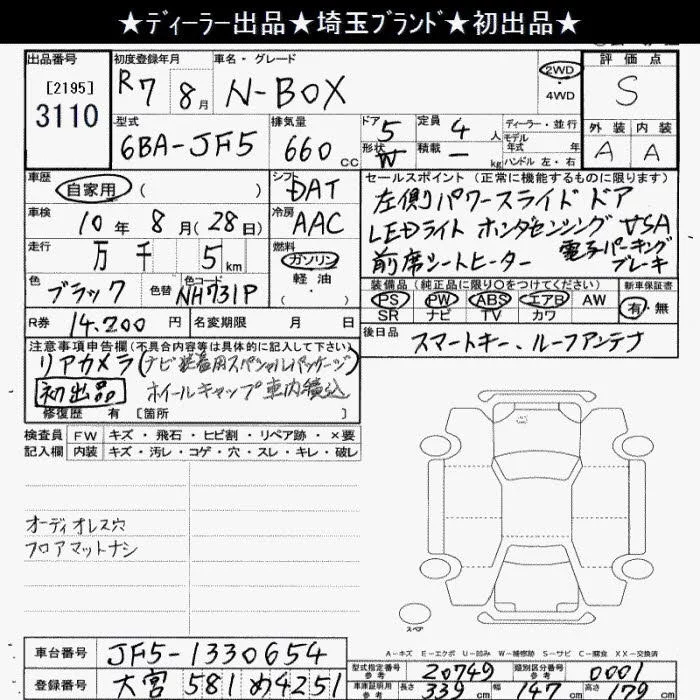 ★ディーラー出品★埼玉ブランド★初出品★
出品番号 初度登録年月 車名・グレード 評価点
[2195] R7年 8月 N-BOX 2WD S
3110 ・4WD
型式 排気量 ドア 定員 ディーラー・並行 外装 内装
6BA-JF5 660cc 5 4人 モデル年式 年 A A
形状 W 積載 - kg ハンドル 左・右
車歴 自家用 ( ) シフト DAT セールスポイント (正常に機能するものに限ります)
車検 10年 8月(28日) 冷房 AAC 左側パワースライドドア
LEDライト ホンダセンシング VSA
走行 万 千 5km 燃料 ガソリン・軽油・( ) 前席シートヒーター 電子パーキングブレーキ
色 ブラック 色替 色コード NH731P 装備品 (純正品に限り○をつけてください) 新車保証書
PS PW ABS エアB AW 有・無
SR ナビ TV カワ
R券 14,200円 名変期限 月 日 後日品 スマートキー、ルーフアンテナ
注意事項申告欄(不具合内容等は具体的に記入して下さい)
リアカメラ(ナビ装着用スペシャルパッケージ)
初出品 ホイールキャップ車内積込
修復歴 有 [箇所 ]
検査員 FW キズ・飛石・ヒビ割・リペア跡・×要
記入欄 内装 キズ・汚レ・コゲ・穴・スレ・キレ・破レ
オーディオレス穴
フロアマットナシ
スペア
車台番号 JF5-1330654
A-キズ E-エクボ U-凹み W-補修跡 S-サビ C-腐食 XX-交換済
型式指定番号 参考 20749 類別区分番号 参考 0001
登録番号 大宮 581 め4251
車庫証明用 参考 長さ 339cm 幅 147cm 高さ 179cm